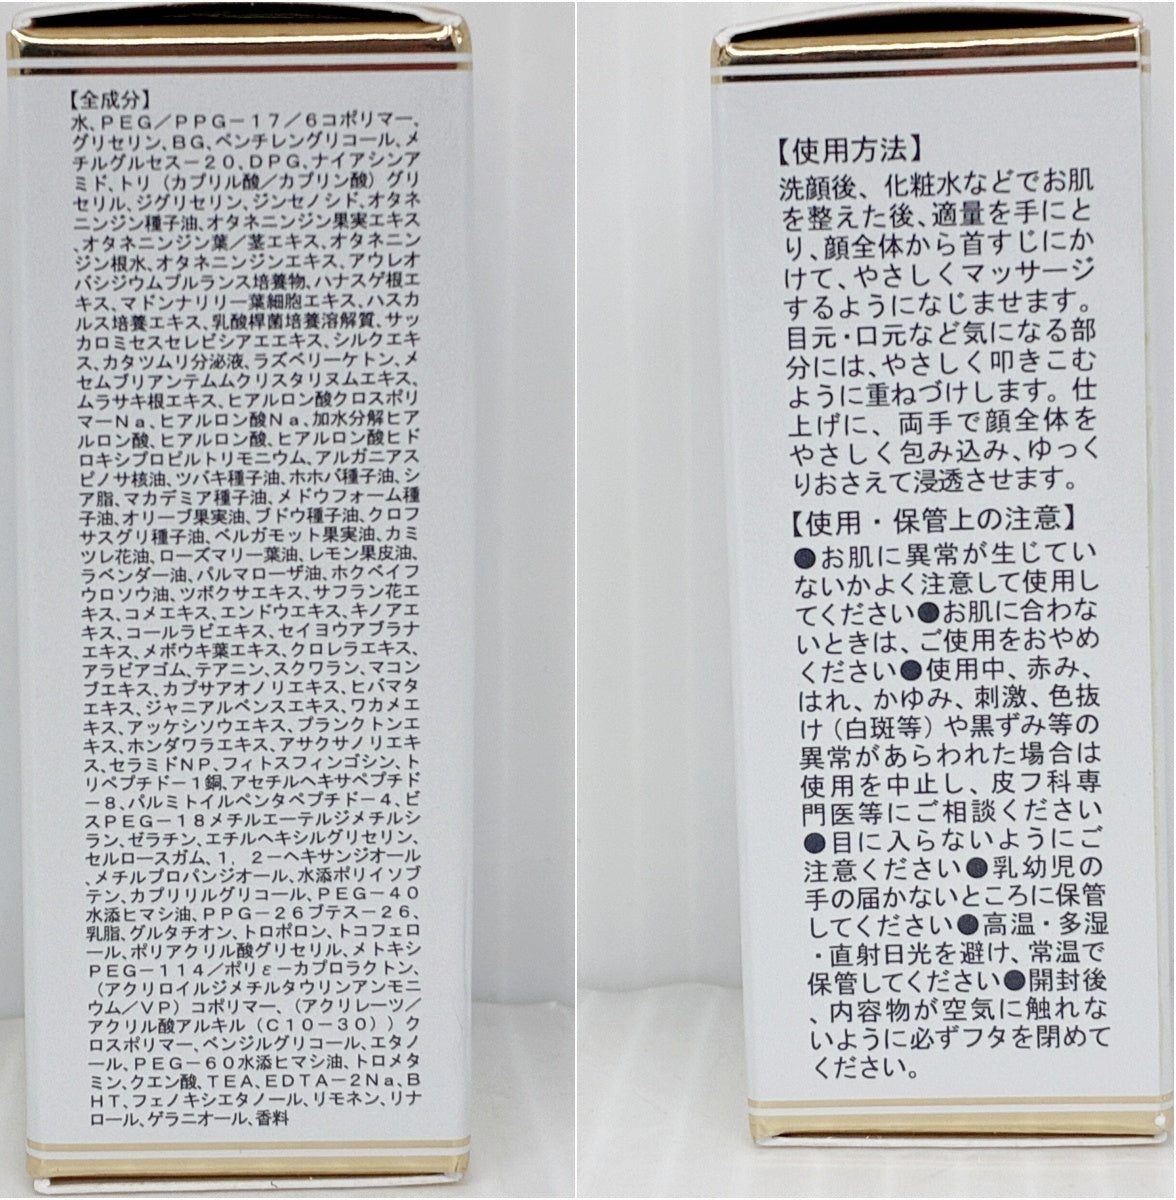 【全成分】
水、PEG／PPG－17／6コポリマー、
グリセリン、BG、ペンチレングリコール、メ
チルグルセス－20、DPG、ナイアシンア
ミド、トリ（カプリル酸／カプリン酸）グリ
セリル、ジグリセリン、ジンセノシド、オタネ
ニンジン種子油、オタネニンジン果実エキス
、オタネニンジン葉／茎エキス、オタネニン
ジン根水、オタネニンジンエキス、アウレオ
バシジウムプルランス培養物、ハナスゲ根エ
キス、マドンナリリー葉細胞エキス、ハスカ
ルス培養エキス、乳酸桿菌培養溶解質、サッ
カロミセスセレビシアエエキス、シルクエキ
ス、カタツムリ分泌液、ラズベリーケトン、メ
セムブリアンテムムクリスタリヌムエキス、
ムラサキ根エキス、ヒアルロン酸クロスポリ
マーNa、ヒアルロン酸Na、加水分解ヒア
ルロン酸、ヒアルロン酸、ヒアルロン酸ヒド
ロキシプロピルトリモニウム、アルガニアス
ピノサ核油、ツバキ種子油、ホホバ種子油、シ
ア脂、マカデミア種子油、メドウフォーム種
子油、オリーブ果実油、ブドウ種子油、クロフ
サスグリ種子油、ベルガモット果実油、カミ
ツレ花油、ローズマリー葉油、レモン果皮油、
ラベンダー油、パルマローザ油、ホクベイフ
ウロソウ油、ツボクサエキス、サフラン花エ
キス、コメエキス、エンドウエキス、キノアエ
キス、コールラビエキス、セイヨウアブラナ
エキス、メボウキ葉エキス、クロレラエキス、
アラビアゴム、テアニン、スクワラン、マコン
ブエキス、カプサアオノリエキス、ヒバマタ
エキス、ジャニアルベンスエキス、ワカメエ
キス、アッケシソウエキス、プランクトンエ
キス、ホンダワラエキス、アサクサノリエキ
ス、セラミドNP、フィトスフィンゴシン、ト
リペプチド－1銅、アセチルヘキサペプチド
－8、パルミトイルペンタペプチド－4、ビ
スPEG－18メチルエーテルジメチルシ
ラン、ゼラチン、エチルヘキシルグリセリン、
セルロースガム、1，2－ヘキサンジオール
、メチルプロパンジオール、水添ポリイソブ
テン、カプリリルグリコール、PEG－40
水添ヒマシ油、PPG－26ブテス－26、
乳脂、グルタチオン、トロポロン、トコフェロ
ール、ポリアクリル酸グリセリル、メトキシ
PEG－114／ポリε－カプロラクトン、
（アクリロイルジメチルタウリンアンモニ
ウム／VP）コポリマー、（アクリレーツ／
アクリル酸アルキル（C10－30））ク
ロスポリマー、ベンジルグリコール、エタノ
ール、PEG－60水添ヒマシ油、トロメタ
ミン、クエン酸、TEA、EDTA－2Na、B
HT、フェノキシエタノール、リモネン、リナ
ロール、ゲラニオール、香料
【使用方法】
洗顔後、化粧水などでお肌
を整えた後、適量を手にと
り、顔全体から首すじにか
けて、やさしくマッサージ
するようになじませます。
目元・口元など気になる部
分には、やさしく叩きこむ
ように重ねづけします。仕
上げに、両手で顔全体を
やさしく包み込み、ゆっく
りおさえて浸透させます。
【使用・保管上の注意】
●お肌に異常が生じてい
ないかよく注意して使用し
てください●お肌に合わな
いときは、ご使用をおやめ
ください●使用中、赤み、
はれ、かゆみ、刺激、色抜
け（白斑等）や黒ずみ等の
異常があらわれた場合は
使用を中止し、皮フ科専
門医等にご相談ください
●目に入らないようにご
注意ください●乳幼児の
手の届かないところに保管
してください●高温・多湿
・直射日光を避け、常温で
保管してください●開封後
、内容物が空気に触れな
いように必ずフタを閉めて
ください。